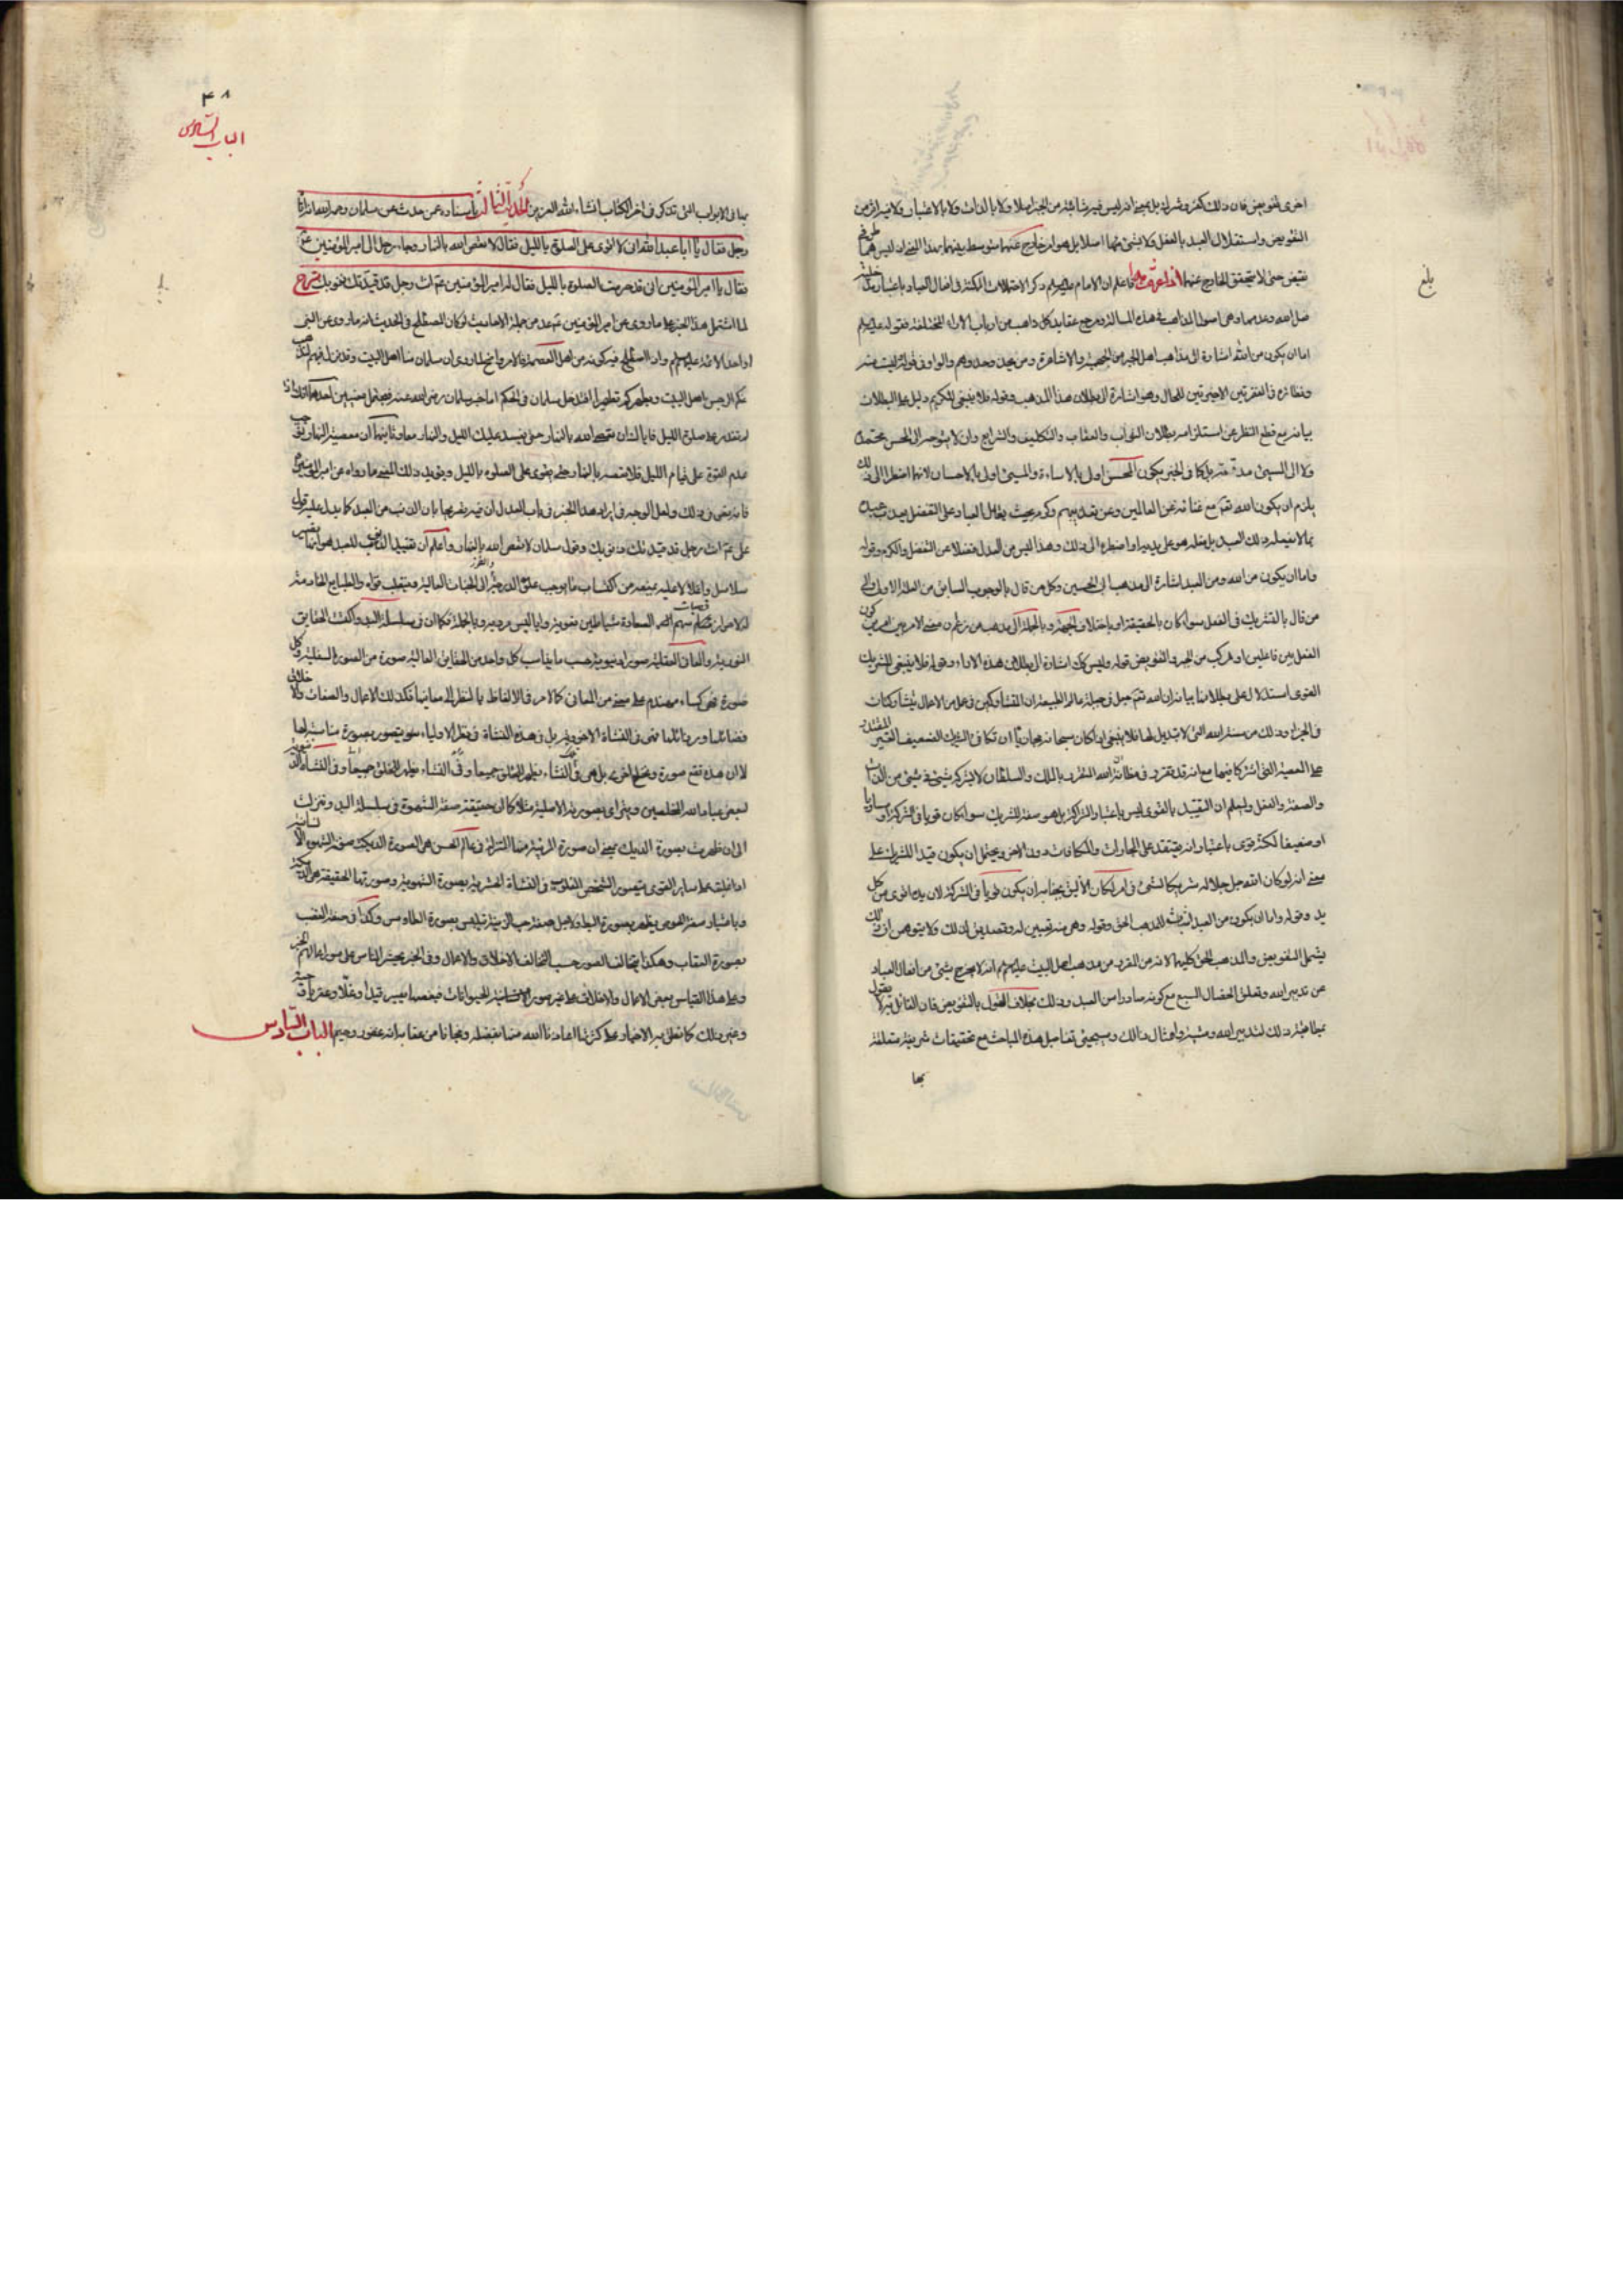 بلغ
اخرى لتفويض فان ذلك كفر وشرك بل بمعنى انه ليس فيه شائبة من الجبر اصلا ولا بالذات ولا بالاعتبار ولا فيه اثر من
التفويض واستقلال العبد بالفعل ولا بشئ منها اصلا بل هو امر خارج عنهما متوسط بينهما بهذا المعنى ان ليس هما طرفي
نقيض حتى لا يتحقق الخارج عنهما اذا عرفت هذا فاعلم ان الامام عليه السلام ذكر الاحتمالات الممكنة في افعال العباد باعتبار
فعل الله وعدمه وهي اصول المذاهب في هذه المسألة ومرجع عقايد كل ذاهب من ارباب الاراء المختلفة فقوله عليه السلام
اما ان يكون من الله اشارة الى مذاهب اهل الجبر من الجهمية والاشاعرة ومن يحذو حذوهم والواو في قوله وليست منه
ونظائره في الفقرتين الاخيرتين للحال وهو اشارة الى بطلان هذا المذهب وقوله فلا ينبغي للكريم دليل على البطلان
بيانه مع قطع النظر عن استلزامه بطلان الثواب والعقاب والتكليف والشرايع وان لا يتوجه الى المحسن محمدة
ولا الى المسيئ مذمة بل كما في الخبر يكون المحسن اولى بالاساءة والمسيئ اولى بالاحسان لانهما اضطرا الى ذلك
يلزم ان يكون الله تعالى مع غنائه عن العالمين وعن تعذيبهم وكرمه بحيث يعامل العباد على التفضل يعذب عبيده
بما لا يفعله ذلك العبد بل فعله هو على يديه او اضطره الى ذلك وهذا ليس من العدل فضلا عن التفضل والكرم وقوله
واما ان يكون من الله ومن العبد اشارة الى مذهب ابي الحسين وكل من قال بالوجوب السابق من العلة الاولى والى
من قال بالتشريك في الفعل سواء كان بالحقيقة او باختلاف الجهة وبالجملة الى مذهب من زعم ان معنى الامر بين امرين كون
الفعل بين فاعلين او مركب من الجبر والتفويض قوله وليس كك اشارة الى بطلان هذه الاراء وقوله فلا ينبغي للشريك
القوى استدلال على بطلانها بيانه ان الله تعالى جعل في جبلة عالم الطبيعة ان المتشاركين في عمل من الاعمال يتشاركان
في الجزاء وذلك من سنة الله التي لا تبديل لها فلا ينبغي اذا كان سبحانه مجازيا ان تكافي الشريك الضعيف الغير المقتدر
على المعصية التي اشتركا فيها مع انه قد تقرر في مظانه ان الله المتفرد بالملك والسلطان لا يشركه شئ في شئ من الذات
والصفة والفعل وليعلم ان التقييد بالقوى ليس باعتبار المشاركة بل هو صفة للشريك سواء كان قويا في الشركة او مساويا
او ضعيفا لكنه قوى باعتبار انه يقتدر على المجازات والمكافات دون الاخر ويحتمل ان يكون قيدا للشريك على
معنى انه لو كان الله جل جلاله شريكا لشئ في امر لكان الأليق بجنابه ان يكون قويا في الشركة لان يده اقوى من كل
يد وقوله واما ان يكون من العبد اثبات للمذهب الحق وقوله وهي منه تعيين له وتصديق لذلك ولا يتوهمن ان ذلك
يشمل التفويض والمذهب الحق كليهما لانه من المقرر من مذهب اهل البيت عليهم السلام انه لا يخرج شئ من افعال العباد
عن تدبير الله وتعلق الخصال السبع مع كونه صادرا من العبد وذلك بخلاف القول بالتفويض فان القائل به لا يقول
بمجامعة ذلك لتدبير الله ومشيته وامثال ذلك وسيجيئ تفاصيل هذه المباحث مع تحقيقات شريفة متعلقة
بها
۴۸
الباب السادس
بها في الابواب التي تذكر في اخر الكتاب انشاء الله العزيز الحديث الثالث باسناده عمن حدث عن سلمان رحمه الله انه اتاه
رجل فقال يا ابا عبد الله انى لا اقوى على الصلوة بالليل فقال لا تعص الله بالنهار وجاء رجل الى امير المؤمنين ع
فقال يا امير المؤمنين انى قد حرمت الصلوة بالليل فقال له امير المؤمنين ع انت رجل قد قيدتك ذنوبك شرح
لما اشتمل هذا الخبر على ما روى عن امير المؤمنين ع عد من جملة الاحاديث لو كان المصطلح في الحديث انه ما روى عن النبى
او احد الائمة عليهم السلام وان اصطلح فيه كونه من اهل العصمة فالامر واضح لما روى ان سلمان منا اهل البيت وقد نزل فيهم ليذهب
عنكم الرجس اهل البيت ويطهركم تطهيرا فقد دخل سلمان في الحكم اما خبر سلمان رضى الله عنه فيحتمل معنيين احدهما انك اذا
لم تقتدر على صلوة الليل فاياك ان تعصى الله بالنهار حتى يفسد عليك الليل والنهار معا وثانيهما ان معصية النهار توجب
عدم القوة على قيام الليل فلا تعصه بالنهار حتى تقوى على الصلوة بالليل ويؤيد ذلك المعنى ما رواه عن امير المؤمنين ع
فانه نص في ذلك ولعل الوجه في ايراد هذا الخبر في باب العدل ان فيه تصريحا بان الذنب من العبد كما يدل عليه قول
على ع انت رجل قد قيدتك ذنوبك وقول سلمان لا تعص الله بالنهار واعلم ان تقييد الذنوب للعبد هو انها تصير
سلاسل واغلالا عليه يمنعه من اكتساب ما يوجب علو الدرجة والعروج الى الجنات العالية
النورية والمعان العقلية صورا دنيوية حسب ما يناسب كل واحد من الحقايق العالية صورة من الصورة السفلية وكل
صورة فهى كساء معنى من المعانى كالامر في الالفاظ بالنظر الى معانيها فكذلك الاعمال والصفات والاخلاق
فضائلها ورذائلها فهى في النشأة الاخروية بل في هذه النشأة في نظر الاولياء سوف يتصور بصورة مناسبة لها
لبعض عباد الله المخلصين ويترأى بصورته الاصلية مثلا كما ان حقيقة صفة الشهوة في سلسلة البدو تنزلت
الى ان ظهرت بصورة الديك بمعنى ان صورة المرتبة منها النازلة في عالم الحس هى الصورة الديكية
اذا غلبت على ساير القوى يتصور الشخص المغلوب في النشأة الحشرية بصورة الشهوية وصورتها الحقيقة هى الديكية
وباعتبار صفة الحرص يظهر بصورة البط ولاجل صفة حب الزينة تلبس بصورة الطاوس وكذا في صفة الغضب
بصورة العقاب وهكذا يتخالف الصور حسب تخالف الاخلاق والاعمال وفي الخبر يحشر الناس على صور اعمالهم
وعلى هذا القياس بعض الاعمال والاخلاق على غير صور الحيوانات فبعضها يصير قيدا وغلا وعقربا وحية
وغير ذلك كما نطق به الاخبار على كثرتها اعاذنا الله منها بفضله ونجانا من عقابه انه غفور رحيم الباب السادس